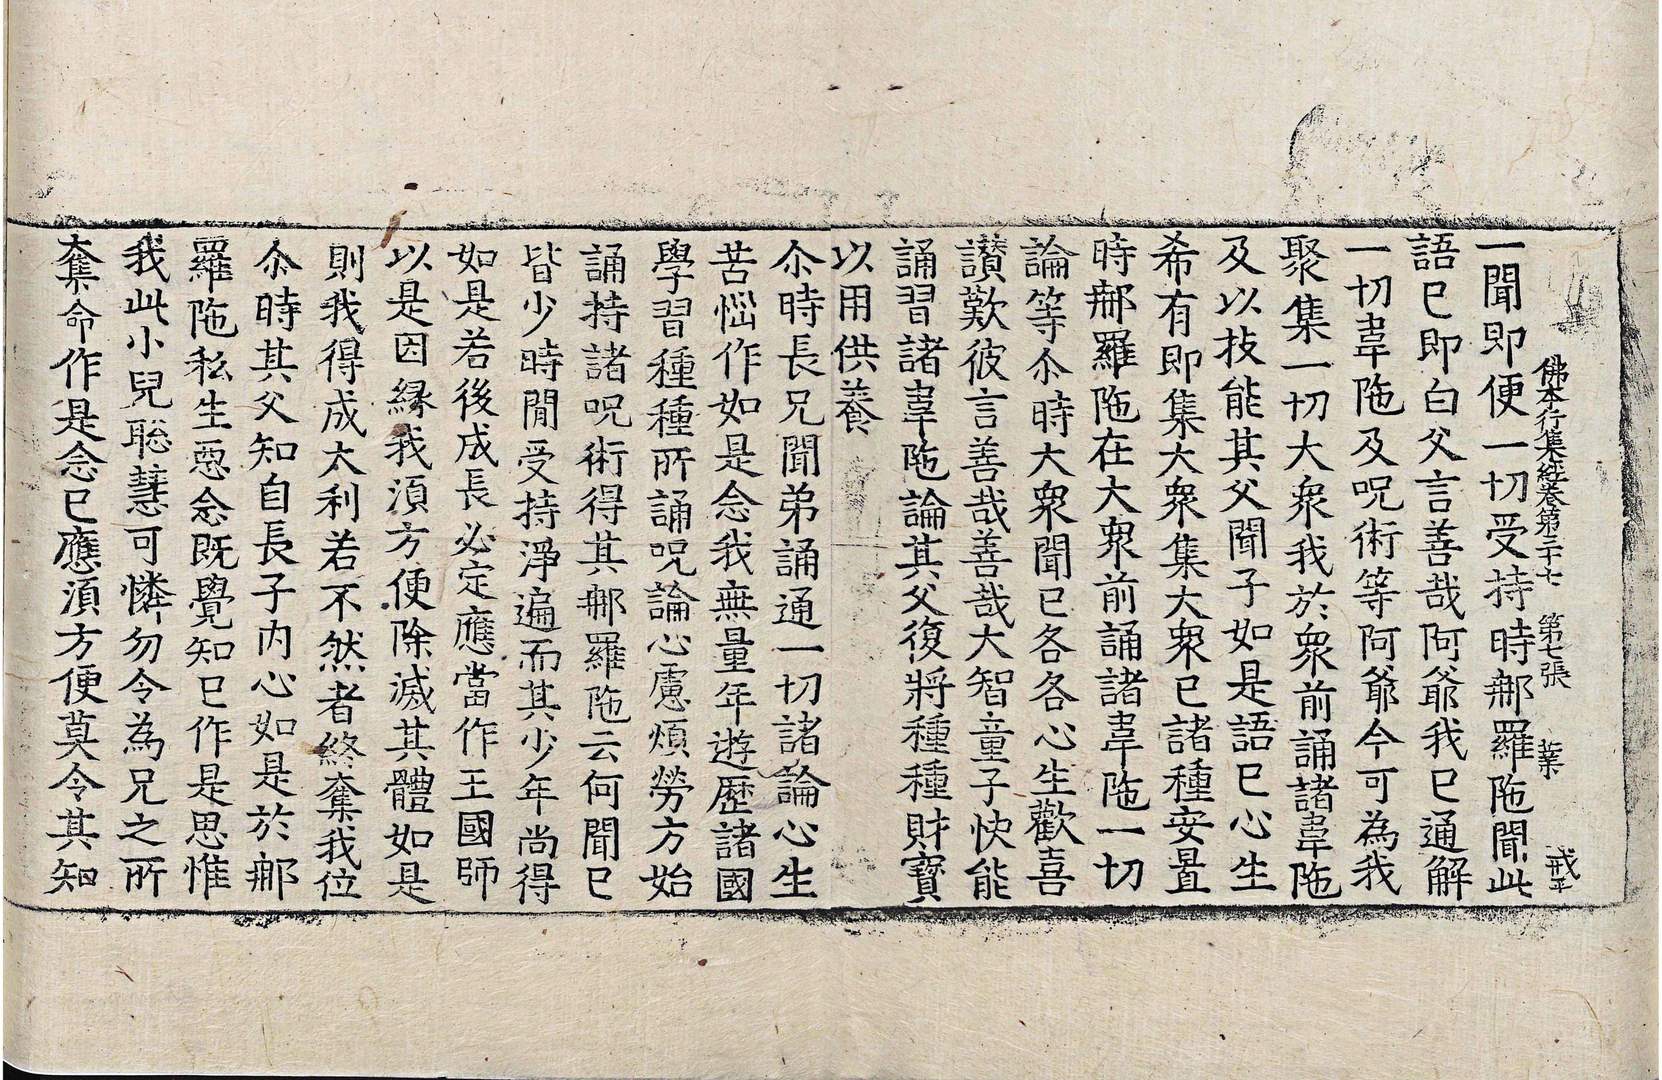 佛本行集經卷第三十七 第七張 業 戒平
一聞即便一切受持時郍羅陁聞此
語已即白父言善哉阿爺我已通解
一切韋陁及呪術等阿爺今可為我
聚集一切大衆我於衆前誦諸韋陁
及以技能其父聞子如是語已心生
希有即集大衆集大衆已諸種安置
時郍羅陁在大衆前誦諸韋陁一切
論等尒時大衆聞已各各心生歡喜
讃歎彼言善哉善哉大智童子快能
誦習諸韋陁論其父復將種種財寳
以用供養
尒時長兄聞弟誦通一切諸論心生
苦惱作如是念我無量年遊歷諸國
學習種種所誦呪論心慮煩勞方始
誦持諸呪術得其郍羅陁云何聞已
皆少時閒受持淨遍而其少年尚得
如是若後成長必定應當作王國師
以是因縁我湏方便除滅其體如是
則我得成大利若不然者終奪我位
尒時其父知自長子内心如是於郍
羅陁私生惡念既覺知已作是思惟
我此小兒聡慧可憐勿令為兄之所
奪命作是念已應湏方便莫令其知